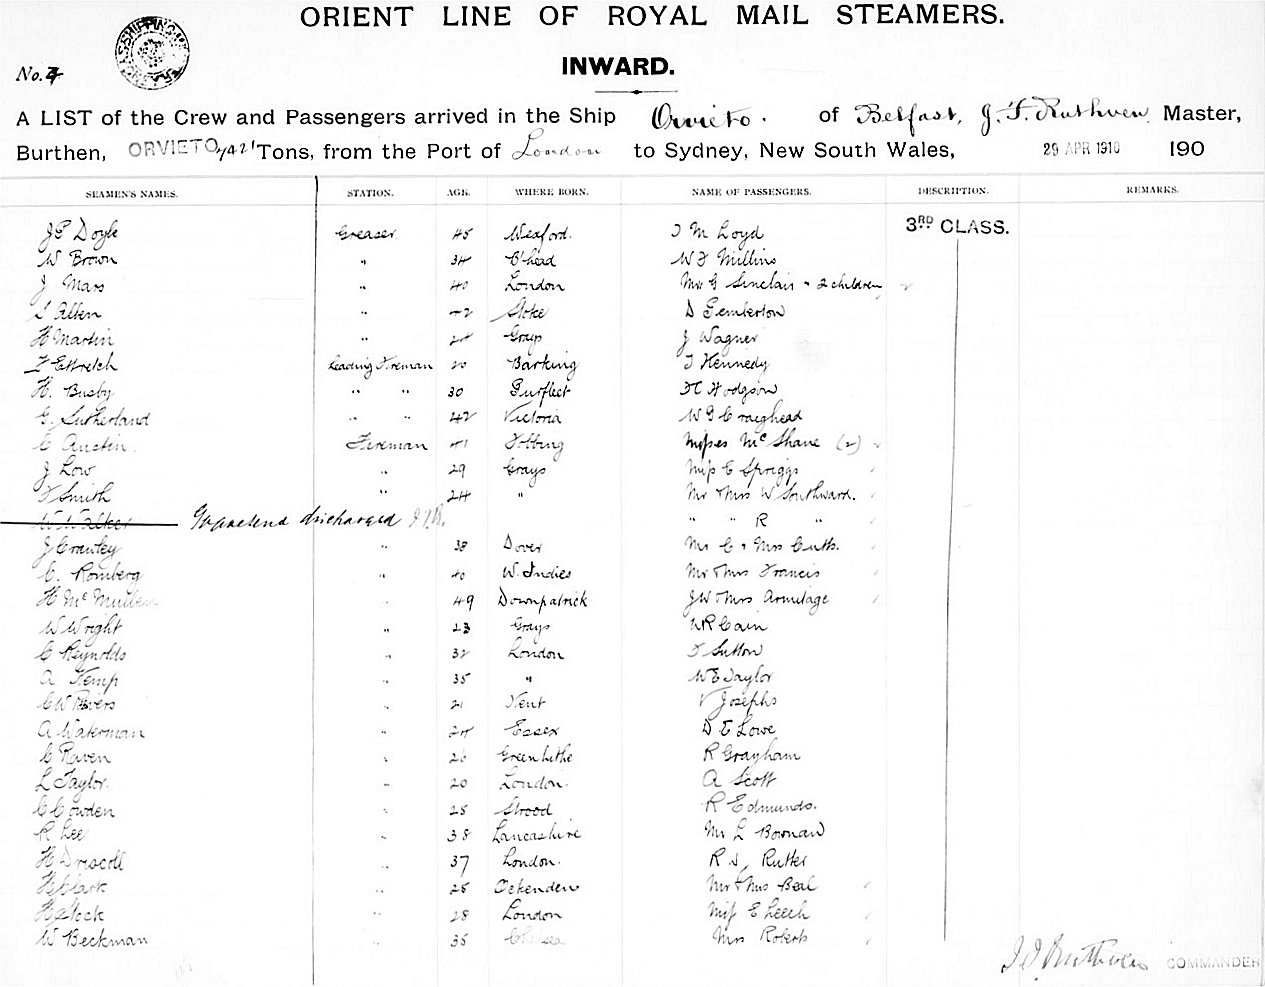 ORIENT LINE OF ROYAL MAIL STEAMERS.
INWARD.
No. 7
A LIST of the Crew and Passengers arrived in the Ship Orvieto. of Belfast, J. F. Ruthven Master,
Burthen, ORVIETO 7421 Tons, from the Port of London to Sydney, New South Wales, 29 APR 1910 190
SEAMEN'S NAMES. STATION. AGE. WHERE BORN. NAME OF PASSENGERS. DESCRIPTION. REMARKS.
3RD CLASS.
J P Doyle Greaser 45 Wexford. J M Loyd
W Brown " 34 C'head W F Millins
J Mars " 40 London Mr G Sinclair " 2 children
S Allen " 42 Stoke D Pemberton
H Martin " 24 Grays J Wagner
Leading Fireman 20 Barking T Kennedy
H. Busby " " 30 Purfleet H Hodgson
G. Sutherland " " 42 Victoria W G Craighead
C Austin. Fireman 41 Misses McShane (2)
J Low " 29 Grays Miss C Spriggs
F Smith " 24 " Mr & Mrs W Southward.
W Walker Gravesend discharged " " R "
J Crawley " 38 Dover Mr C & Mrs Cuths.
C. Romberg " 40 W. Indies Mr & Mrs Francis
H McMullen " 49 Downpatrick J W & Mrs Armitage
W Wright " 23 Grays W R Cain
C Reynolds " 32 London F Sutton
A Kemp " 35 " W E Taylor
C W Rivers " 21 Kent V Josephs
A Waterman " 24 Essex D E Lowe
C Raven " 26 Greenhithe R Grayham
L Taylor. " 20 London. A Scott
C Cowden " 25 Strood R Edmunds.
R Lee " 38 Lancashire Mr L Bownan
H Driscoll " 37 London. R S, Rutter
H Clark " 25 Ockenden Mr & Mrs Beal
H Stock " 28 London Miss E Leech
W Beckman " 35 Chelsea Mrs Roberts
J F Ruthven COMMANDER